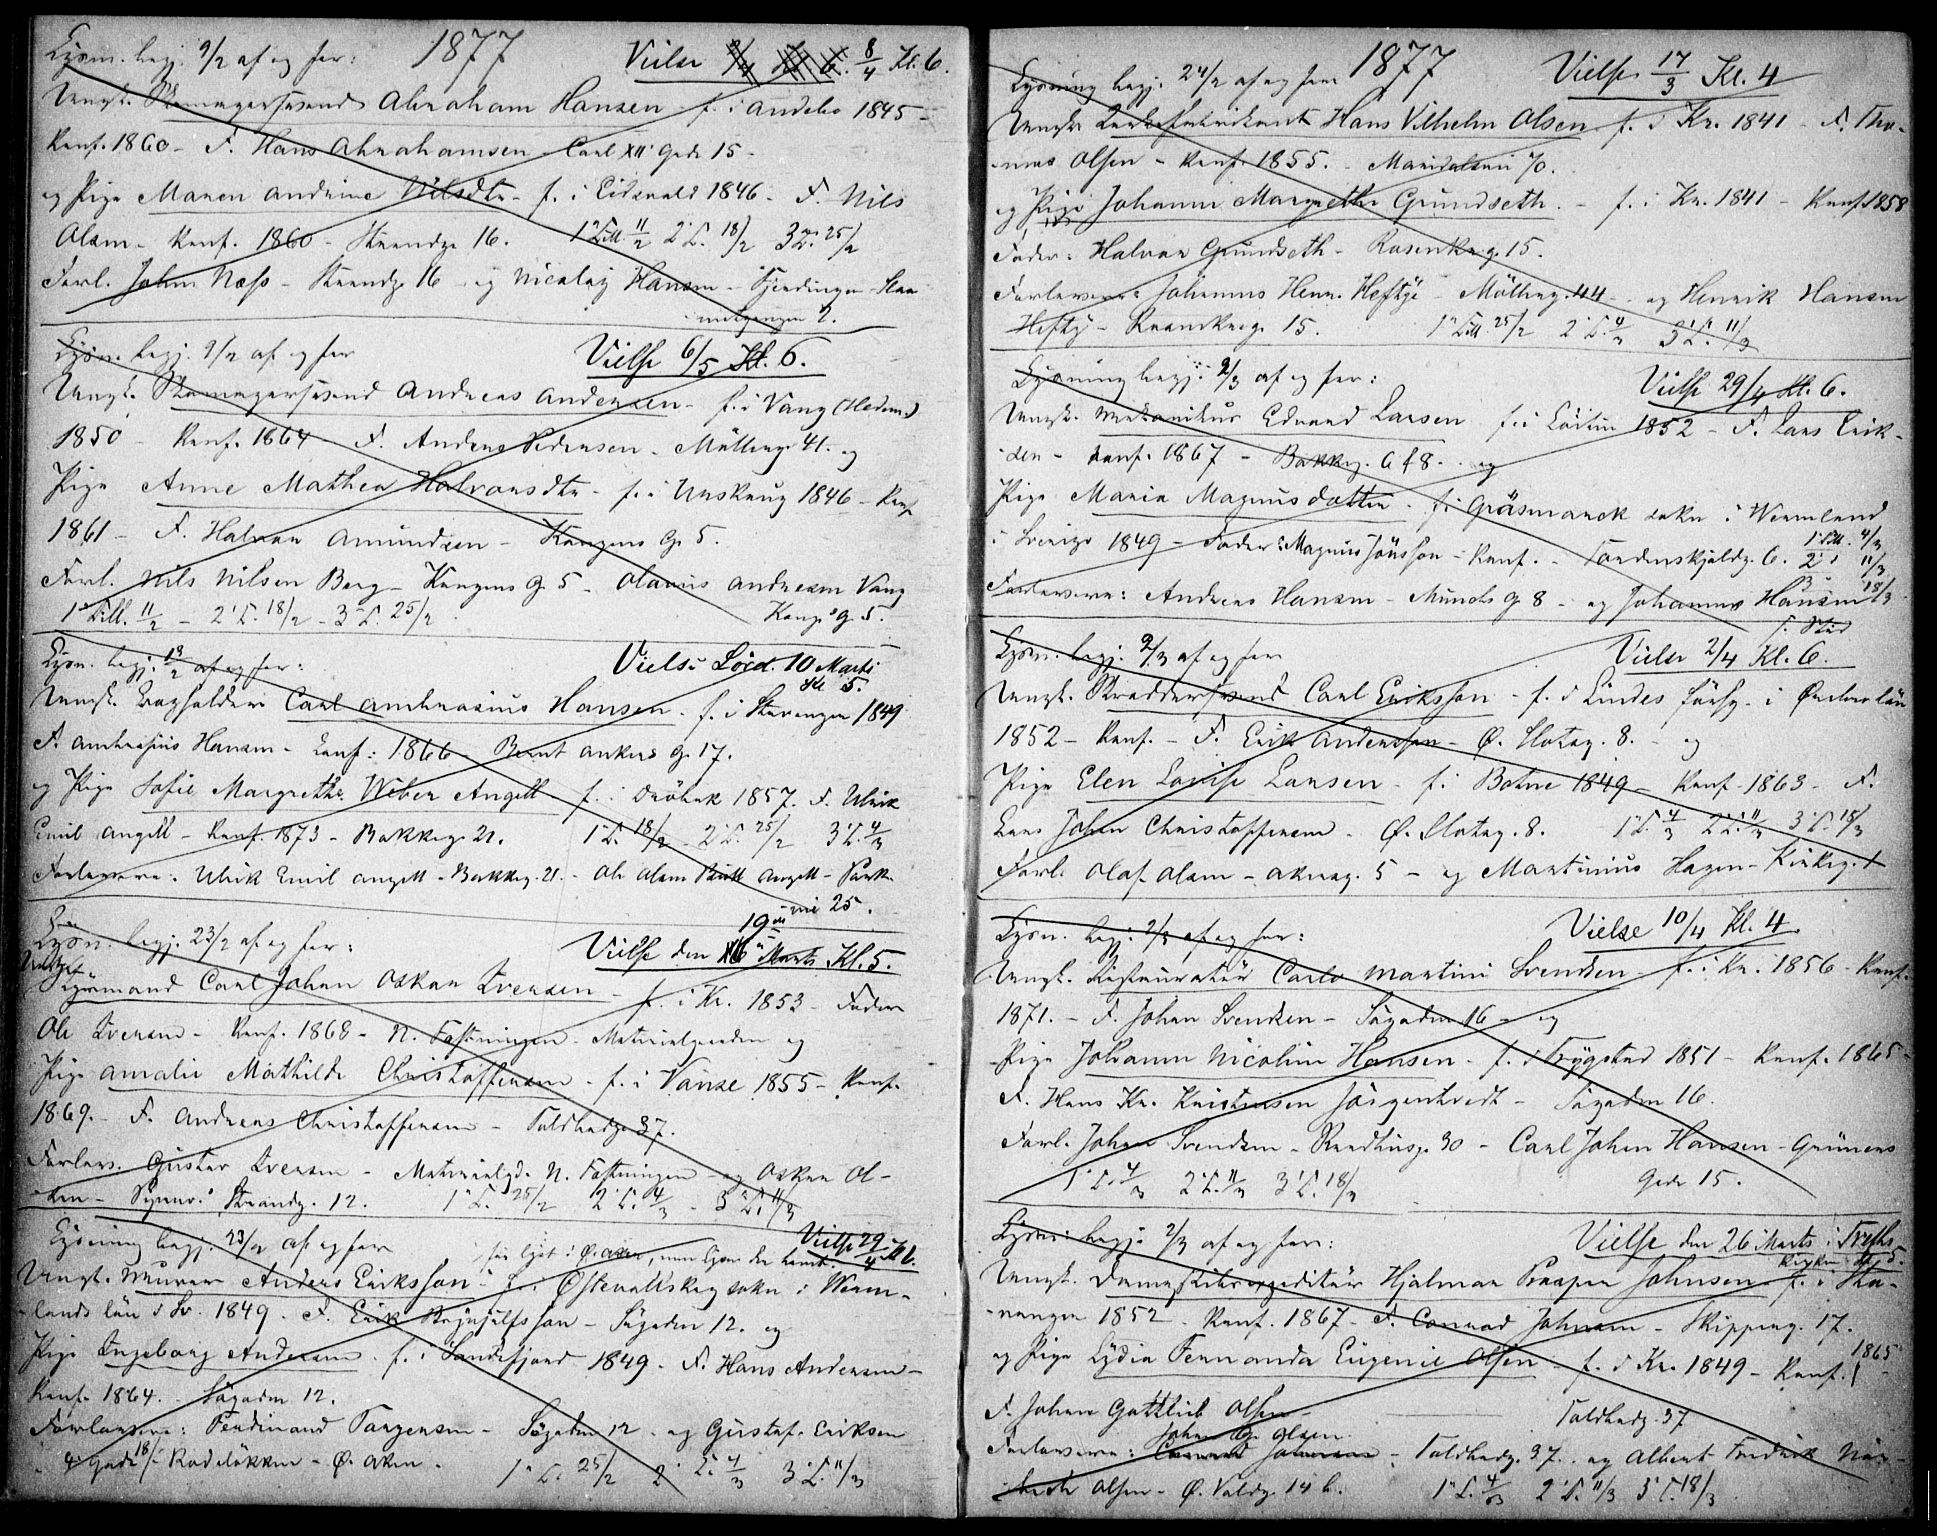 Lysn. begj. 9/2 af og for: 1877 Vielse 8/4 Kl. 6.
Ungk. Skomagersvend Abraham Hansen f. i Andebo 1845 -
Konf. 1860 - F. Hans Abrahamsen Carl XII Gade 15 -
og Pige Maren Andrine Nilsdtr - f. i Eidsvold 1846 - F. Nils
Olsen - Konf. 1860 - Strandg. 16. 1' Till. 11/2 2' L. 18/2 3' L. 25/2
Forl. John Næss - Strandg. 16 og Nicolaij Hansen - Tjerdingen
2.
Lysn. begj. 9/2 af og for Vielse 6/5 Kl. 6.
Ungk. Skomagersvend Andreas Andersen - f. i Vang (Hedem.)
1850 - Konf. 1864 - F. Anders Pedersen - Mölleg. 41. og
Pige Anne Mathea Halvorsdtr - f. i Urskoug 1846 - Konf
1861 - F. Halvor Amundsen - Kongens G. 5.
Forl. Nils Nilsen Berg - Kongens G. 5 - Olavus Andresen Vang
1' Till. 11/2 - 2' L. 18/2 - 3' L. 25/2 Kong's G. 5.
Lysn. begj. 13/2 af og for: Vielse Lörd. 10 Marts
Kl 5.
Ungk. Bogholder Carl Ambrosius Hansen - f. i Stavanger 1849
F. Ambrosius Hansen - Konf: 1866 - Bernt Ankers G. 17.
og Pige Sofie Margrethe Weber Angell f. i Dröbak 1857. F. Ulrik
Emil Angell - Konf. 1873 - Bakkeg. 21. 1' L. 18/2 2' L. 25/2 3' L. 4/3
Forlovere: Ulrik Emil Angell - Bakkeg. 21. - Ole Olsen Angell - Park-
veien 25.
19de
Lysn. begj. 23/2 af og for: Vielse den Marts Kl. 5.
Ungk. Fyrmand Carl Johan Oskar Iversen - f. i Kr. 1853 - Fader
Ole Iversen - Konf. 1868 - N. Fæstningen - Materialgaarden og
Pige Amalie Mathilde Christoffersen - f. i Vanse 1855 - Konf.
1869. - F. Andreas Christoffersen - Toldbodg. 37.
Forlov. Gustav Iversen - Materialgd. N. Fæstningen - og Oskar Ol-
sen - Strandg. 12. 1' L. 25/2 2' L. 4/3 3' L. 11/3
Lysning begj. 23/2 af og for Vielse 29/4 Kl 6.
Ungk. Murer Anders Eriksson - f. i Östervallskog sokn i Werm-
lands län i Sv. 1849 - F. Erik - Sögaden 12. og
Pige Ingeborg Andersen - f. i Sandefjord 1849 - F. Hans Andersen -
Konf. 1864. - Sögaden 12.
Forlovere: Ferdinand Torgersen - Sögaden 12 - og Gustaf Eriksen
4' gade 18/ Rodelökken - Ö. Aker - 1' L. 25/2 2' L. 4/3 3' L. 11/3
Lysning begj. 24/2 af og for 1877 Vielse 17/3 Kl. 4
Ungk. Hans Vilhelm Olsen f. i Kr. 1841 - F. Tho-
mas Olsen - Konf. 1855. - Maridalsvei 70.
og Pige Johanne Margrethe Grundseth - f. i Kr. 1841 - Konf. 1858
Fader: Halvor Grundseth - Rosenkrg. 15.
Forlovere: Johannes Henr. Heftye - Mölleg. 44 - og Henrik Hansen
Hefty - Rosenkrg. 15. 1' Till 25/2 2' L. 4/3 3' L. 11/3
Lysning begj. 2/3 af og for: Vielse 29/4 Kl. 6.
Ungk. Mekanikus Edvard Larsen f. i Löiten 1852 - F. Lars Erik-
sen - Konf. 1867 - Bakkeg. 6 f 8 - og
Pige Maria Magnusdotter - f. i Gräsmarck sokn i Wermland
i Sverige 1849 - Fader: Magnus Jönsson - Konf. - Tordenskjoldg. 6. 1' Till. 4/3
2' 11/3
Forlovere: Andreas Hansen - Munchs G 8 - og Johannes Hansen 3' 18/3
Lysn. begj. 2/3 af og for Vielse 2/4 Kl. 6.
Ungk. Skraddersvend Carl Eriksson - f. i Lindes förs. i Örebro län
1852 - Konf. - F. Erik Andersson - Ö. Slotsg. 8. - og
Pige Elen Lovise Larsen - f. i Botne 1849 - Konf. 1863 - F.
Lars Johan Christoffersen - Ö. Slotsg. 8. 1' L. 4/3 2' L. 11/3 3' L. 18/3
Forl. Olaf Olsen - Akersg. 5 - og Martinius Hagen - Kirkeg. 1
Lysn. begj. 2/3 af og for: Vielse 10/4 Kl. 4
Ungk. Restauratör Carlo Martini Svendsen - f. i Kr. 1856 - Konf.
1871. - F. Johan Svendsen - Sögaden 16 - og
Pige Johanne Nicoline Hansen - f. i Trygstad 1851 - Konf. 1865 -
F. Hans Kr. Kristensen Jörgentvedt - Sögaden 16.
Forl. Johan Svendsen - Raadhusg. 30 - Carl Johan Hansen - Grüners
1' L. 4/3 2' L. 11/3 3' L. 18/3 Gade 15.
Lysn: begj. 2/3 af og for: Vielse den 26 Marts i Trefls
Kirken Kl. 5.
Ungk. Dampskibsexpeditör Hjalmar Johnsen - f. i Sta-
vanger 1852 - Konf. 1867 - F. Conrad Johnsen - Skipperg. 17.
og Pige Lydia Fernanda Eugenie Olsen - f. i Kr. 1849 - Konf. 1865
F. Johan Gottlieb Olsen - Toldbodg. 37
Johan G. Olsen
Forlovere: Conrad Johnsen - Toldbodg. 37. og Albert Fredrik
Olsen - Ö. Voldg. 14 b. 1' L. 4/3 2' L. 11/3 3' L. 18/3